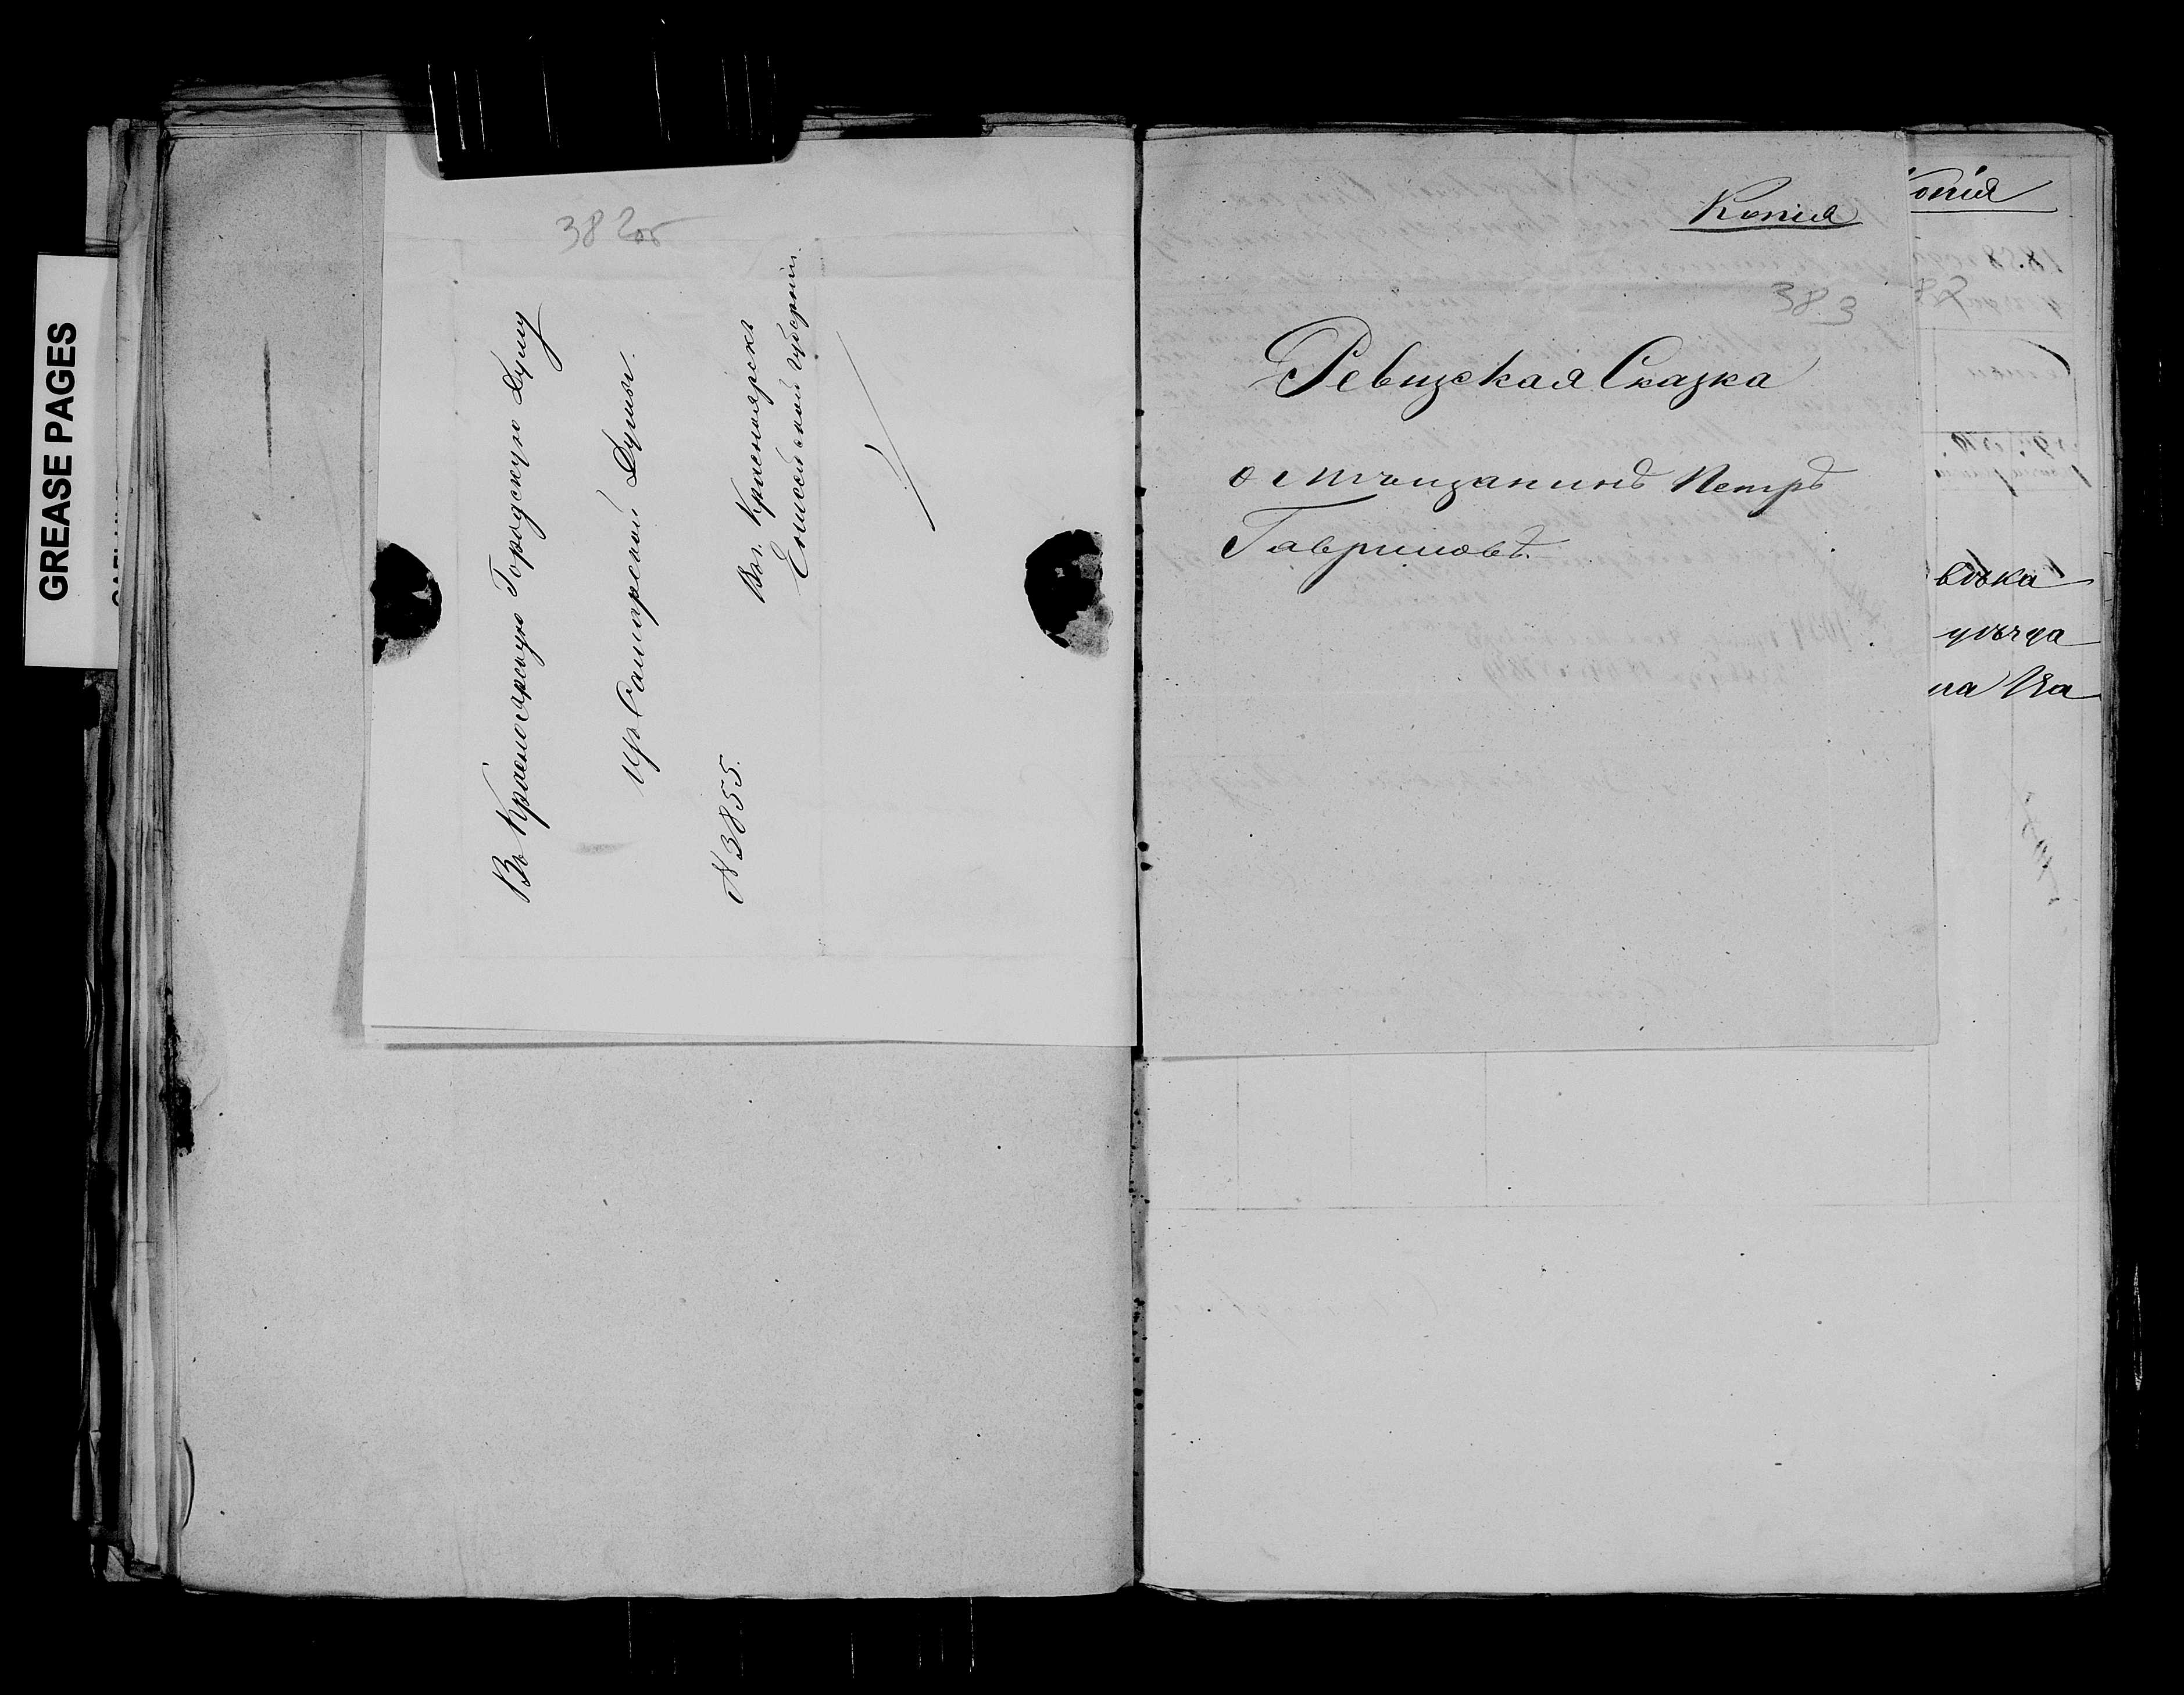 GREASE PAGES
382об
Въ Красноярскую Городскую Думу
изъ Самарской Думы.
N 3855.
Въ г. Красноярскъ
Енисейской губерніи
Копія
383
Ревизская Сказка
о мѣщанинѣ Петрѣ
Гавриловѣ.
опія
вѣка
уѣзда